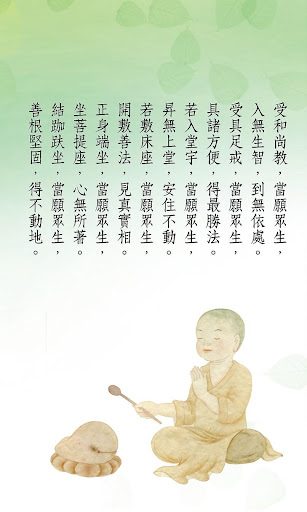 受和尚教，當願眾生，
入無生智，到無依處。
受具足戒，當願眾生，
具諸方便，得最勝法。
若入堂宇，當願眾生，
昇無上堂，安住不動。
若敷床座，當願眾生，
開敷善法，見真實相。
正身端坐，當願眾生，
坐菩提座，心無所著。
結跏趺坐，當願眾生，
善根堅固，得不動地。